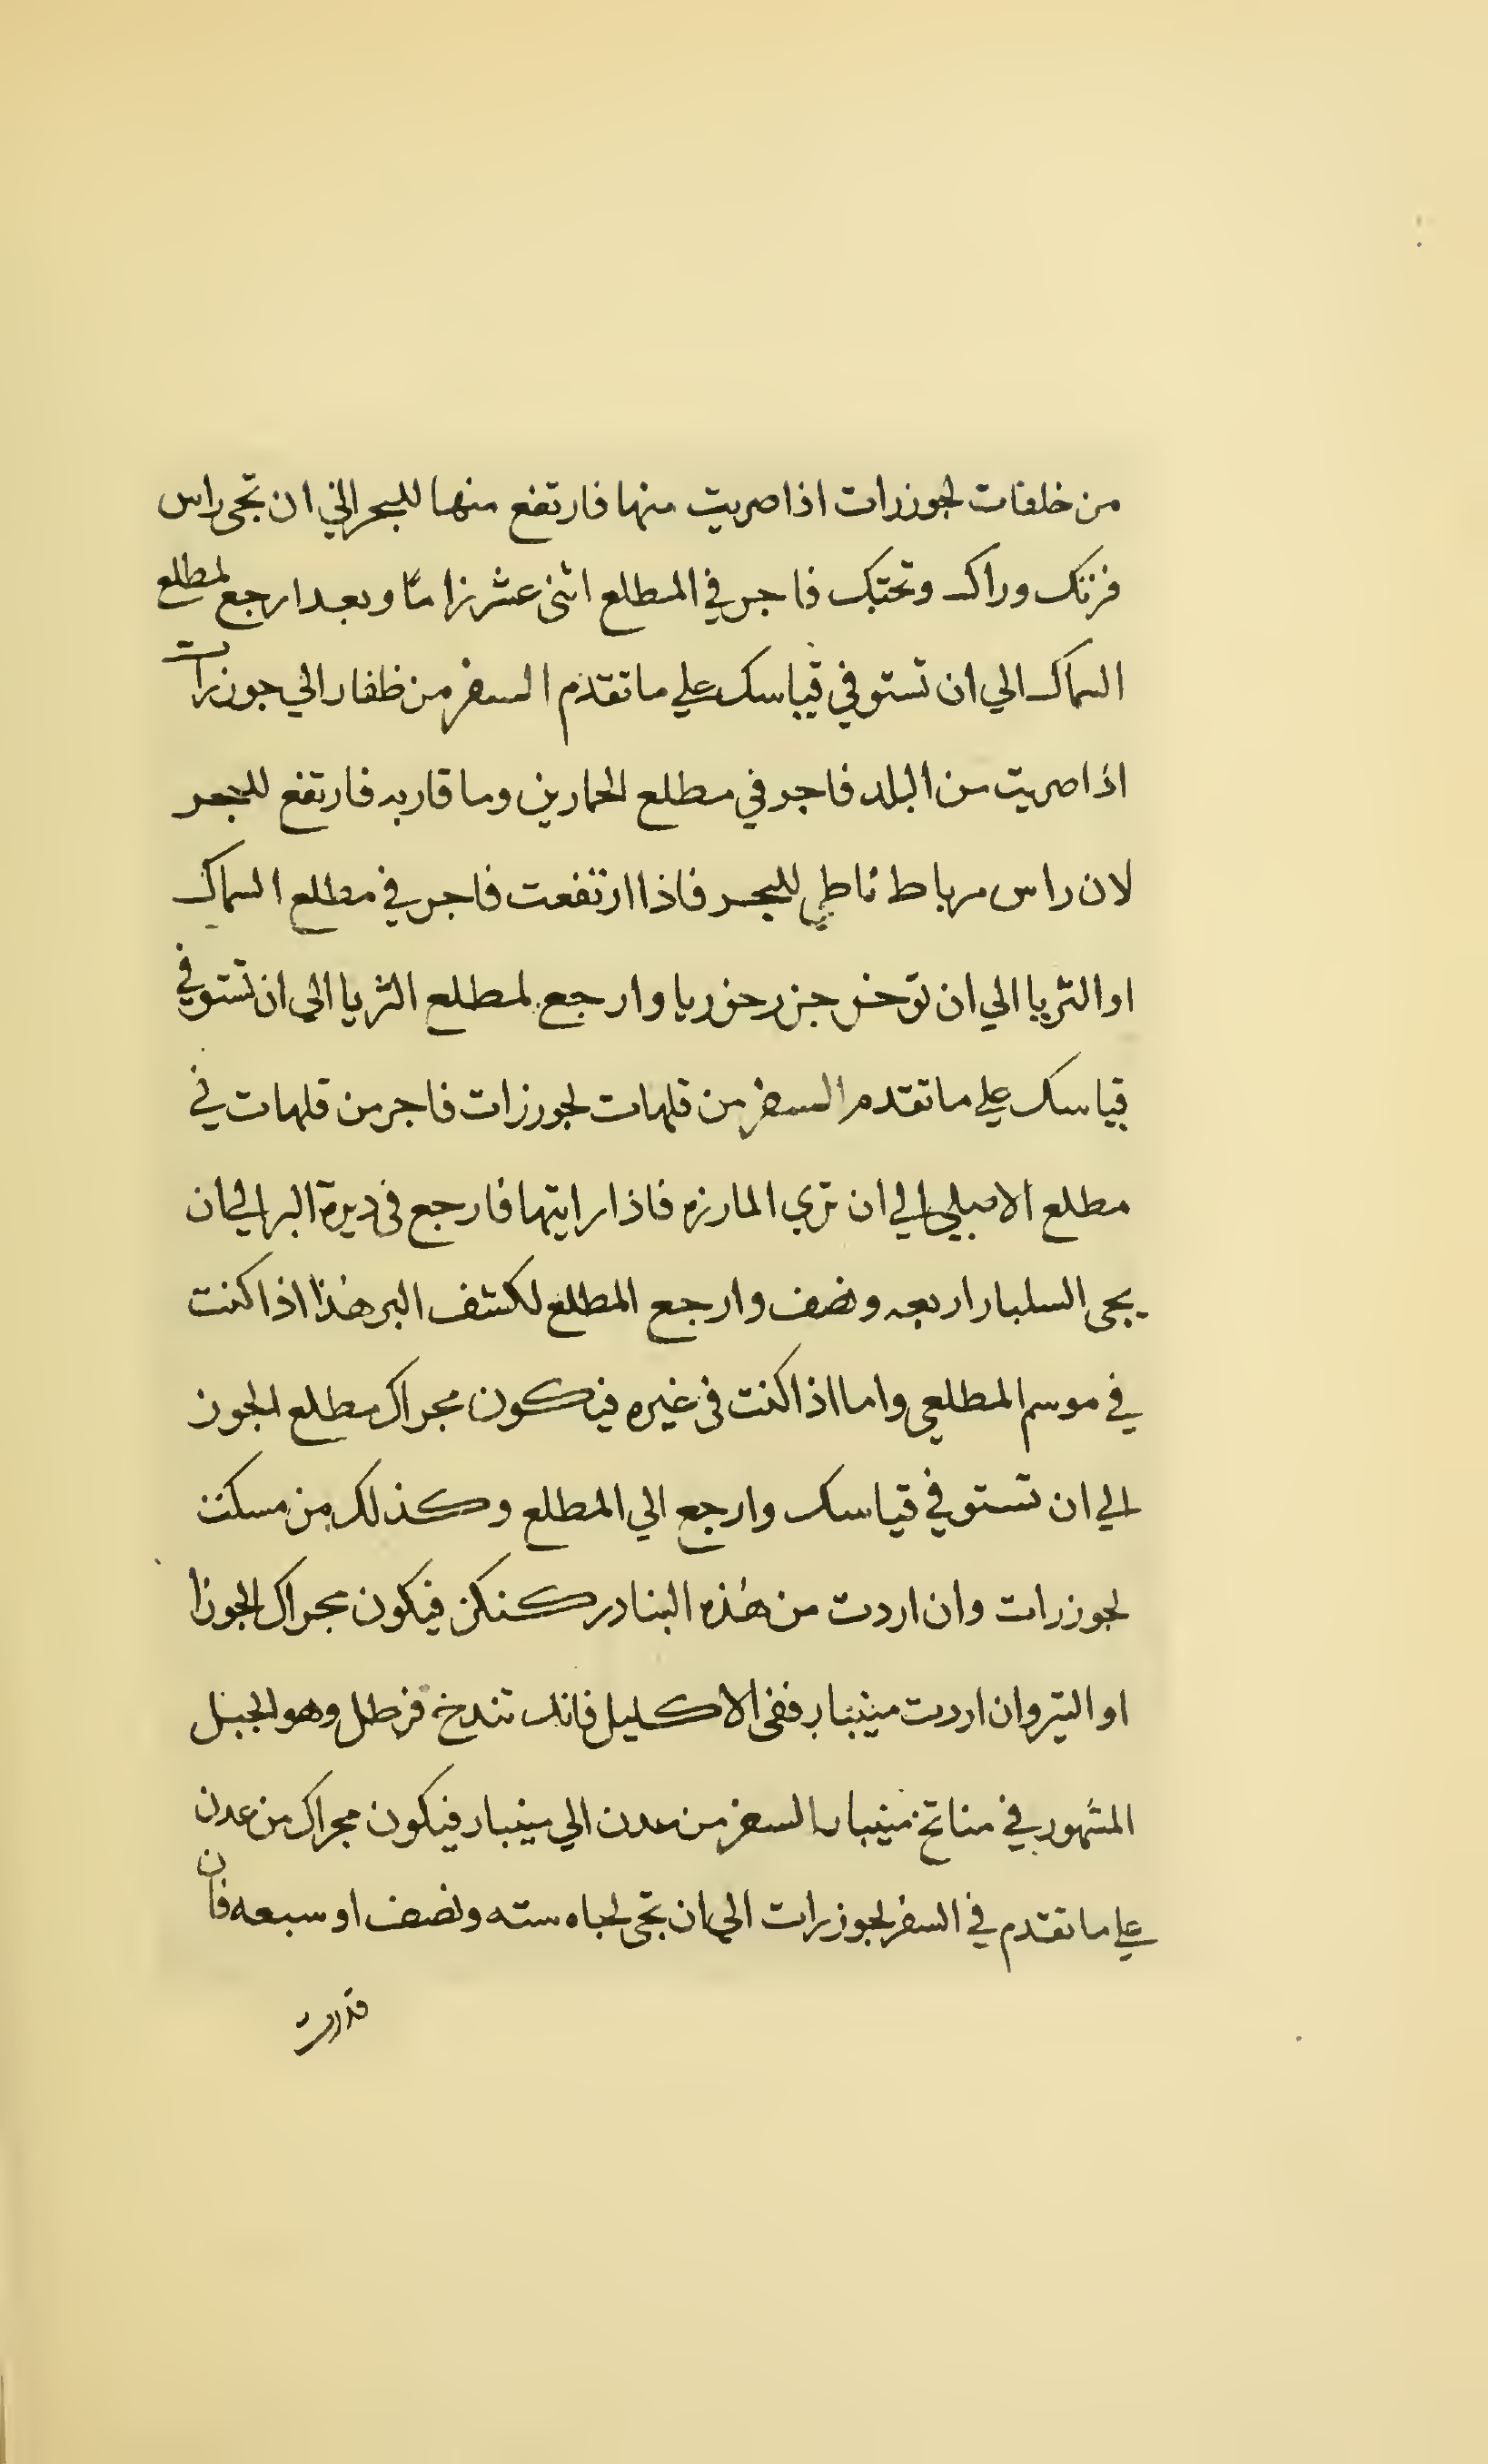 من خلفات لجوزرات اذا صريت منها فارتفع منها للبحر الي ان تجي راس
فرتك وراك وتحتبك فاجر في المطلع اثنى عشر زاما وبعد ارجع لمطلع
السماك الي ان تستوفي قياسك علي ما تقدم السفر من ظفار الي جوزرات
اذا صريت من البلد فاجر في مطلع الحمارين وما قاربه فارتفع للبحر
لان راس مرباط ناطح للبحر فاذا ارتفعت فاجر في مطلع السماك
او الثريا الي ان توخر جزر خوريا وارجع لمطلع الثريا الي ان تستوفي
قياسك علي ما تقدم السفر من قلهات لجوزرات فاجر من قلهات في
مطلع الاصلي الي ان تري المارزه فاذا رايتها فارجع في ديرة البر الي ان
يجي السلبار اربعه ونصف وارجع المطلع لكشف البر هذا اذا كنت
في موسم المطلعي واما اذا كنت في غيره فيكون مجراك مطلع الجوز
الي ان تستوفي قياسك وارجع الي المطلع وكذلك من مسكت
لجوزرات وان اردت من هذه البنادر كنكن فيكون مجراك الجوزا
او التير وان اردت منيبار ففي الاكليل فانك تندخ فرطل وهو الجبل
المشهور في مناتخ منيبار السفر من عدن الي منيبار فيكون مجراك من عدن
علي ما تقدم في السفر لجوزرات الي ان تجي لجاه سته ونصف او سبعه فان
قدرت